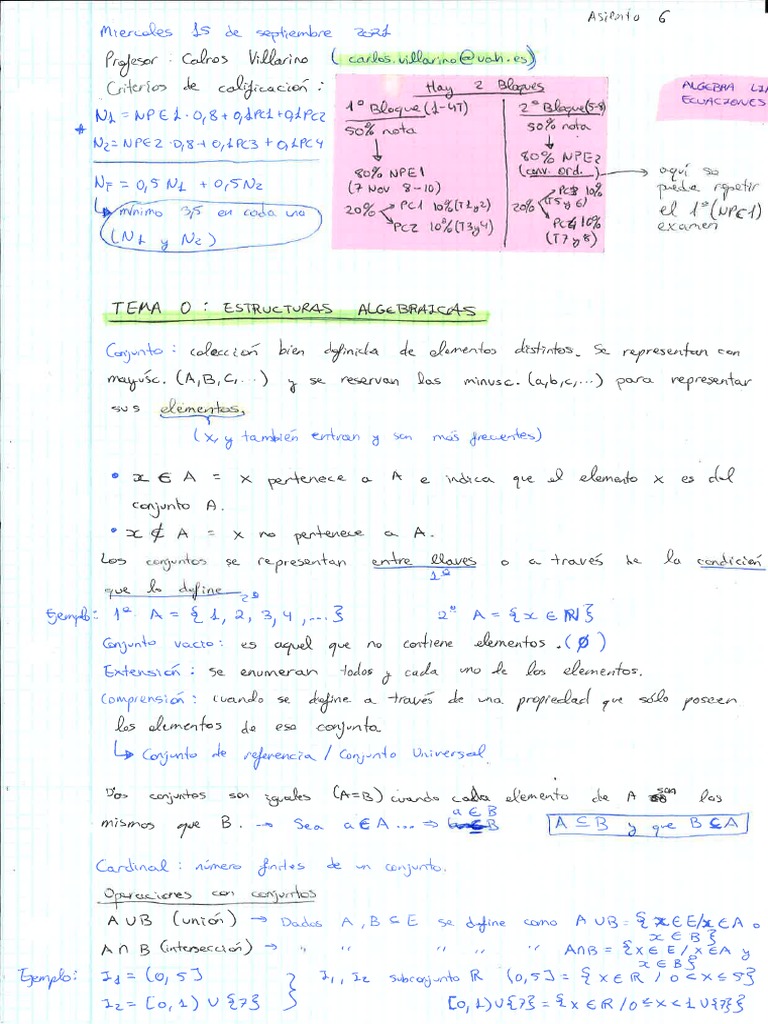 Asiento 6
Miercoles 15 de septiembre 2021
Profesor: Calros Villarino (carlos.villarino@uah.es)
Criterios de calificación:
* N1 = NPE1·0,8 + 0,1PC1 + 0,1PC2
N2 = NPE2·0,8 + 0,1PC3 + 0,1PC4
NF = 0,5 N1 + 0,5 N2
↳ mínimo 3,5 en cada uno
(N1 y N2)
Hay 2 Bloques
1º Bloque (1-4T)
50% nota
↓
80% NPE1
(7 Nov 8-10)
20% PC1 10% (T1y2)
PC2 10% (T3y4)
2º Bloque (5-8)
50% nota
↓
80% NPE2
(conv. ord.)
20% PC3 10%
(T5 y 6)
PC4 10%
(T7 y 8)
→ aquí se
puede repetir
el 1º (NPE1)
examen
ALGEBRA LI
ECUACIONES
TEMA 0: ESTRUCTURAS ALGEBRAICAS
Conjunto: colección bien definida de elementos distintos. Se representan con
mayúsc. (A,B,C,...) y se reservan las minusc. (a,b,c,...) para representar
sus elementos.
(x, y también entran y son más frecuentes)
• x ∈ A = x pertenece a A e indica que el elemento x es del
conjunto A.
• x ∉ A = x no pertenece a A.
Los conjuntos se representan entre llaves o a través de la condición
1º
que lo define
2º
Ejemplo: 1º A = {1, 2, 3, 4, ...} 2º A = {x ∈ ℕ}
Conjunto vacio: es aquel que no contiene elementos. (∅)
Extensión: se enumeran todos y cada uno de los elementos.
Comprensión: cuando se define a través de una propiedad que sólo poseen
los elementos de ese conjunto
↳ Conjunto de referencia / Conjunto Universal.
Dos conjuntos son iguales (A=B) cuando cada elemento de A son los
mismos que B. → Sea a∈A ... ⇒ a ∈ B A ⊆ B y que B ⊆ A
Cardinal: número finitos de un conjunto.
Operaciones con conjuntos
A ∪ B (unión) → Dados A, B ⊆ E se define como A ∪ B = {x ∈ E / x ∈ A o
x ∈ B}
A ∩ B (intersección) → " " " " " A∩B = {x ∈ E / x ∈ A y
x ∈ B}
Ejemplo: I1 = (0, 5] I1, I2 subconjunto ℝ (0,5] = {x ∈ ℝ / 0 < x ≤ 5}
I2 = [0, 1) ∪ {7} [0,1) ∪ {7} = {x ∈ ℝ / 0 ≤ x < 1 ∪ {7}}